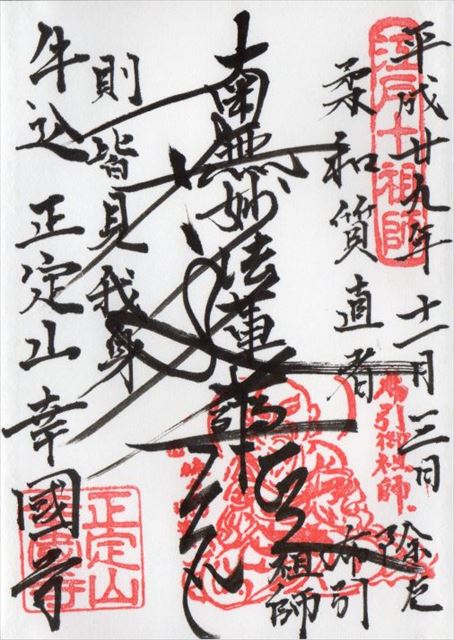 平成廿九年 十一月三日
江戸十祖師
柔和質直者
布引御祖師
除厄
布引
祖師
南無妙法蓮華経
則皆見我身
牛込 正定山 幸國寺
正定山
幸國寺